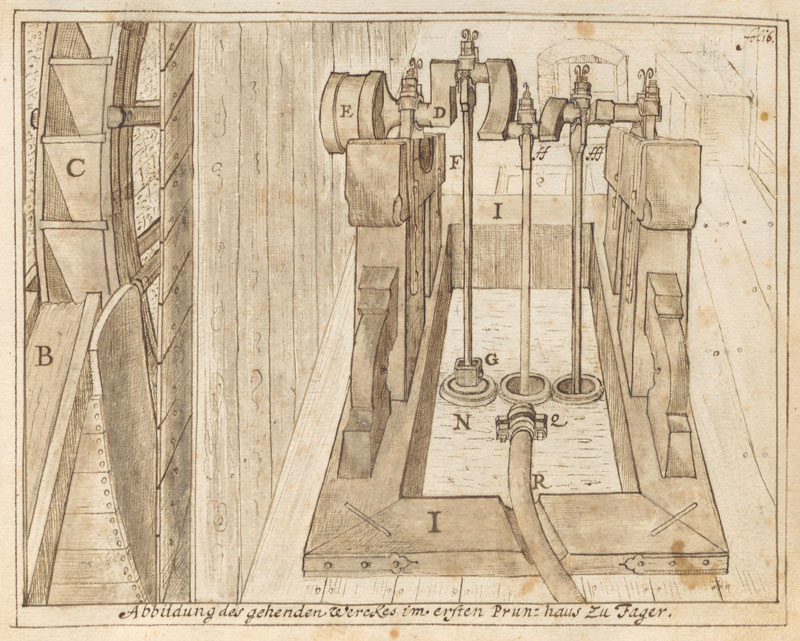 N 16.
E
D
C
F
ff
fff
I
B
G
N
Q
R
I
Abbildung des gehenden Werckes im ersten Prun=haus zu Fager.